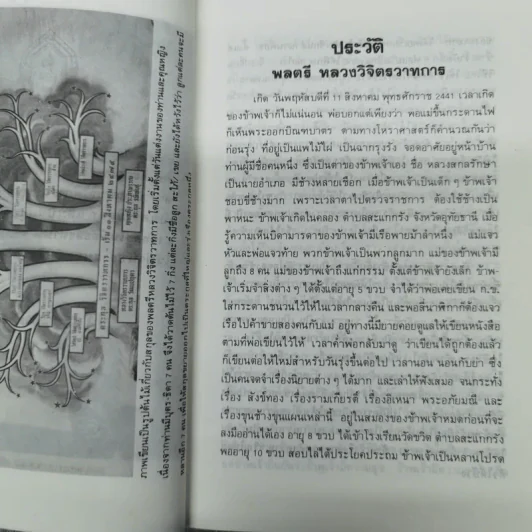 ภาพเขียนเป็นรูปต้นไม้เกี่ยวกับสกุลของพลตรีหลวงวิจิตรวาทการ โดยเริ่มตั้งแต่วันแต่งงานของท่านและคุณหญิง
เนื่องจากท่านมีบุตร-ธิดา 7 คน จึงได้วาดต้นไม้ไว้ 7 กิ่ง แต่ละกิ่งมีชื่อลูก สะใภ้ เขย และยังได้หวังไว้ว่า ลูกแต่ละคนจะมี
ประวัติ
พลตรี หลวงวิจิตรวาทการ
เกิด วันพฤหัสบดีที่ 11 สิงหาคม พุทธศักราช 2441 เวลาเกิด
ของข้าพเจ้าก็ไม่แน่นอน พ่อบอกแต่เพียงว่า พอแม่ขึ้นกระดานไฟ
ก็เห็นพระออกบิณฑบาตร ตามทางโหราศาสตร์ก็คำนวณกันว่า
ก่อนรุ่ง ที่อยู่เป็นแพไม้ไผ่ เป็นฉากรุงรัง จอดอาศัยอยู่หน้าบ้าน
ท่านผู้มีชื่อคนหนึ่ง ซึ่งเป็นตาของข้าพเจ้าเอง ชื่อ หลวงสกลรักษา
เป็นนายอำเภอ มีช้างหลายเชือก เมื่อข้าพเจ้าเป็นเด็ก ๆ ข้าพเจ้า
ชอบขี่ช้างมาก เพราะเวลาตาไปตรวจราชการ ต้องใช้ช้างเป็น
พาหนะ ข้าพเจ้าเกิดในคลอง ตำบลสะแกกรัง จังหวัดอุทัยธานี เมื่อ
รู้ความเห็นบิดามารดาของข้าพเจ้ามีเรือพายม้าลำหนึ่ง แม่แจว
หัวและพ่อแจวท้าย พวกข้าพเจ้าเป็นพวกลูกมาก แม่ของข้าพเจ้ามี
ลูกถึง 8 คน แม่ของข้าพเจ้าถึงแก่กรรม ตั้งแต่ข้าพเจ้ายังเล็ก ข้าพ-
เจ้าเริ่มจำสิ่งต่าง ๆ ได้ตั้งแต่อายุ 5 ขวบ จำได้ว่าพ่อเคยเขียน ก.ข.
ใส่กระดานชนวนไว้ให้ในเวลากลางคืน และพอสี่นาฬิกาก็ต้องแจว
เรือไปค้าขายสองคนกับแม่ อยู่ทางนี้มียายคอยดูแลให้เขียนหนังสือ
ตามที่พ่อเขียนไว้ให้ เวลาค่ำพ่อกลับมาดู ว่าเขียนได้ถูกต้องแล้ว
ก็เขียนต่อให้ใหม่สำหรับวันรุ่งขึ้นต่อไป เวลานอน นอนกับย่า ซึ่ง
เป็นคนจดจำเรื่องนิยายต่าง ๆ ได้มาก และเล่าให้ฟังเสมอ จนกระทั่ง
เรื่อง สังข์ทอง เรื่องรามเกียรติ์ เรื่องอิเหนา พระอภัยมณี และ
เรื่องขุนช้างขุนแผนเหล่านี้ อยู่ในสมองของข้าพเจ้าหมดก่อนที่จะ
ลงมืออ่านได้เอง อายุ 8 ขวบ ได้เข้าโรงเรียนวัดขวิด ตำบลสะแกกรัง
พออายุ 10 ขวบ สอบไล่ได้ประโยคประถม ข้าพเจ้าเป็นหลานโปรด